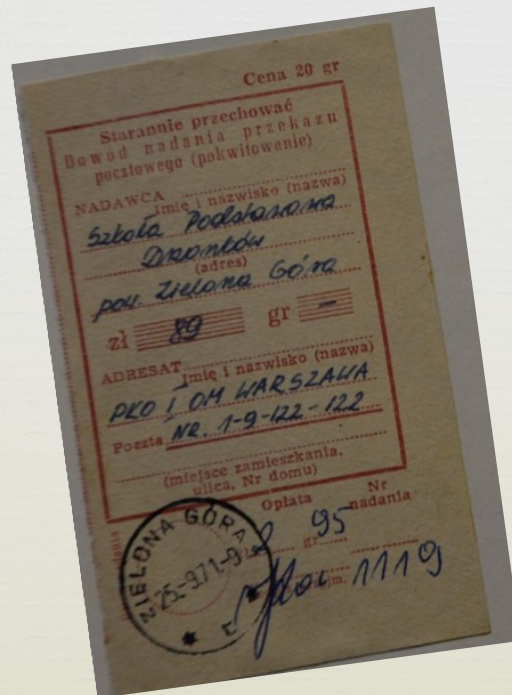 Cena 20 gr
Starannie przechować
Dowód nadania przekazu
pocztowego (pokwitowanie)
NADAWCA
Imię i nazwisko (nazwa)
Szkoła Podstawowa
Drzonków
(adres)
pow. Zielona Góra
zł 89 gr —
ADRESAT
Imię i nazwisko (nazwa)
PKO I OM WARSZAWA
Poczta NR. 1-9-122-122
(miejsce zamieszkania,
ulica, Nr domu)
Opłata Nr
nadania
ZIELONA GÓRA
25.-9.71.-9
2 gr 95
1119